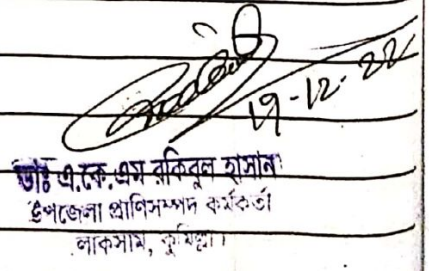 19-12-22
ডাঃ এ.কে.এম রকিবুল হাসান
উপজেলা প্রাণিসম্পদ কর্মকর্তা
লাকসাম, কুমিল্লা।